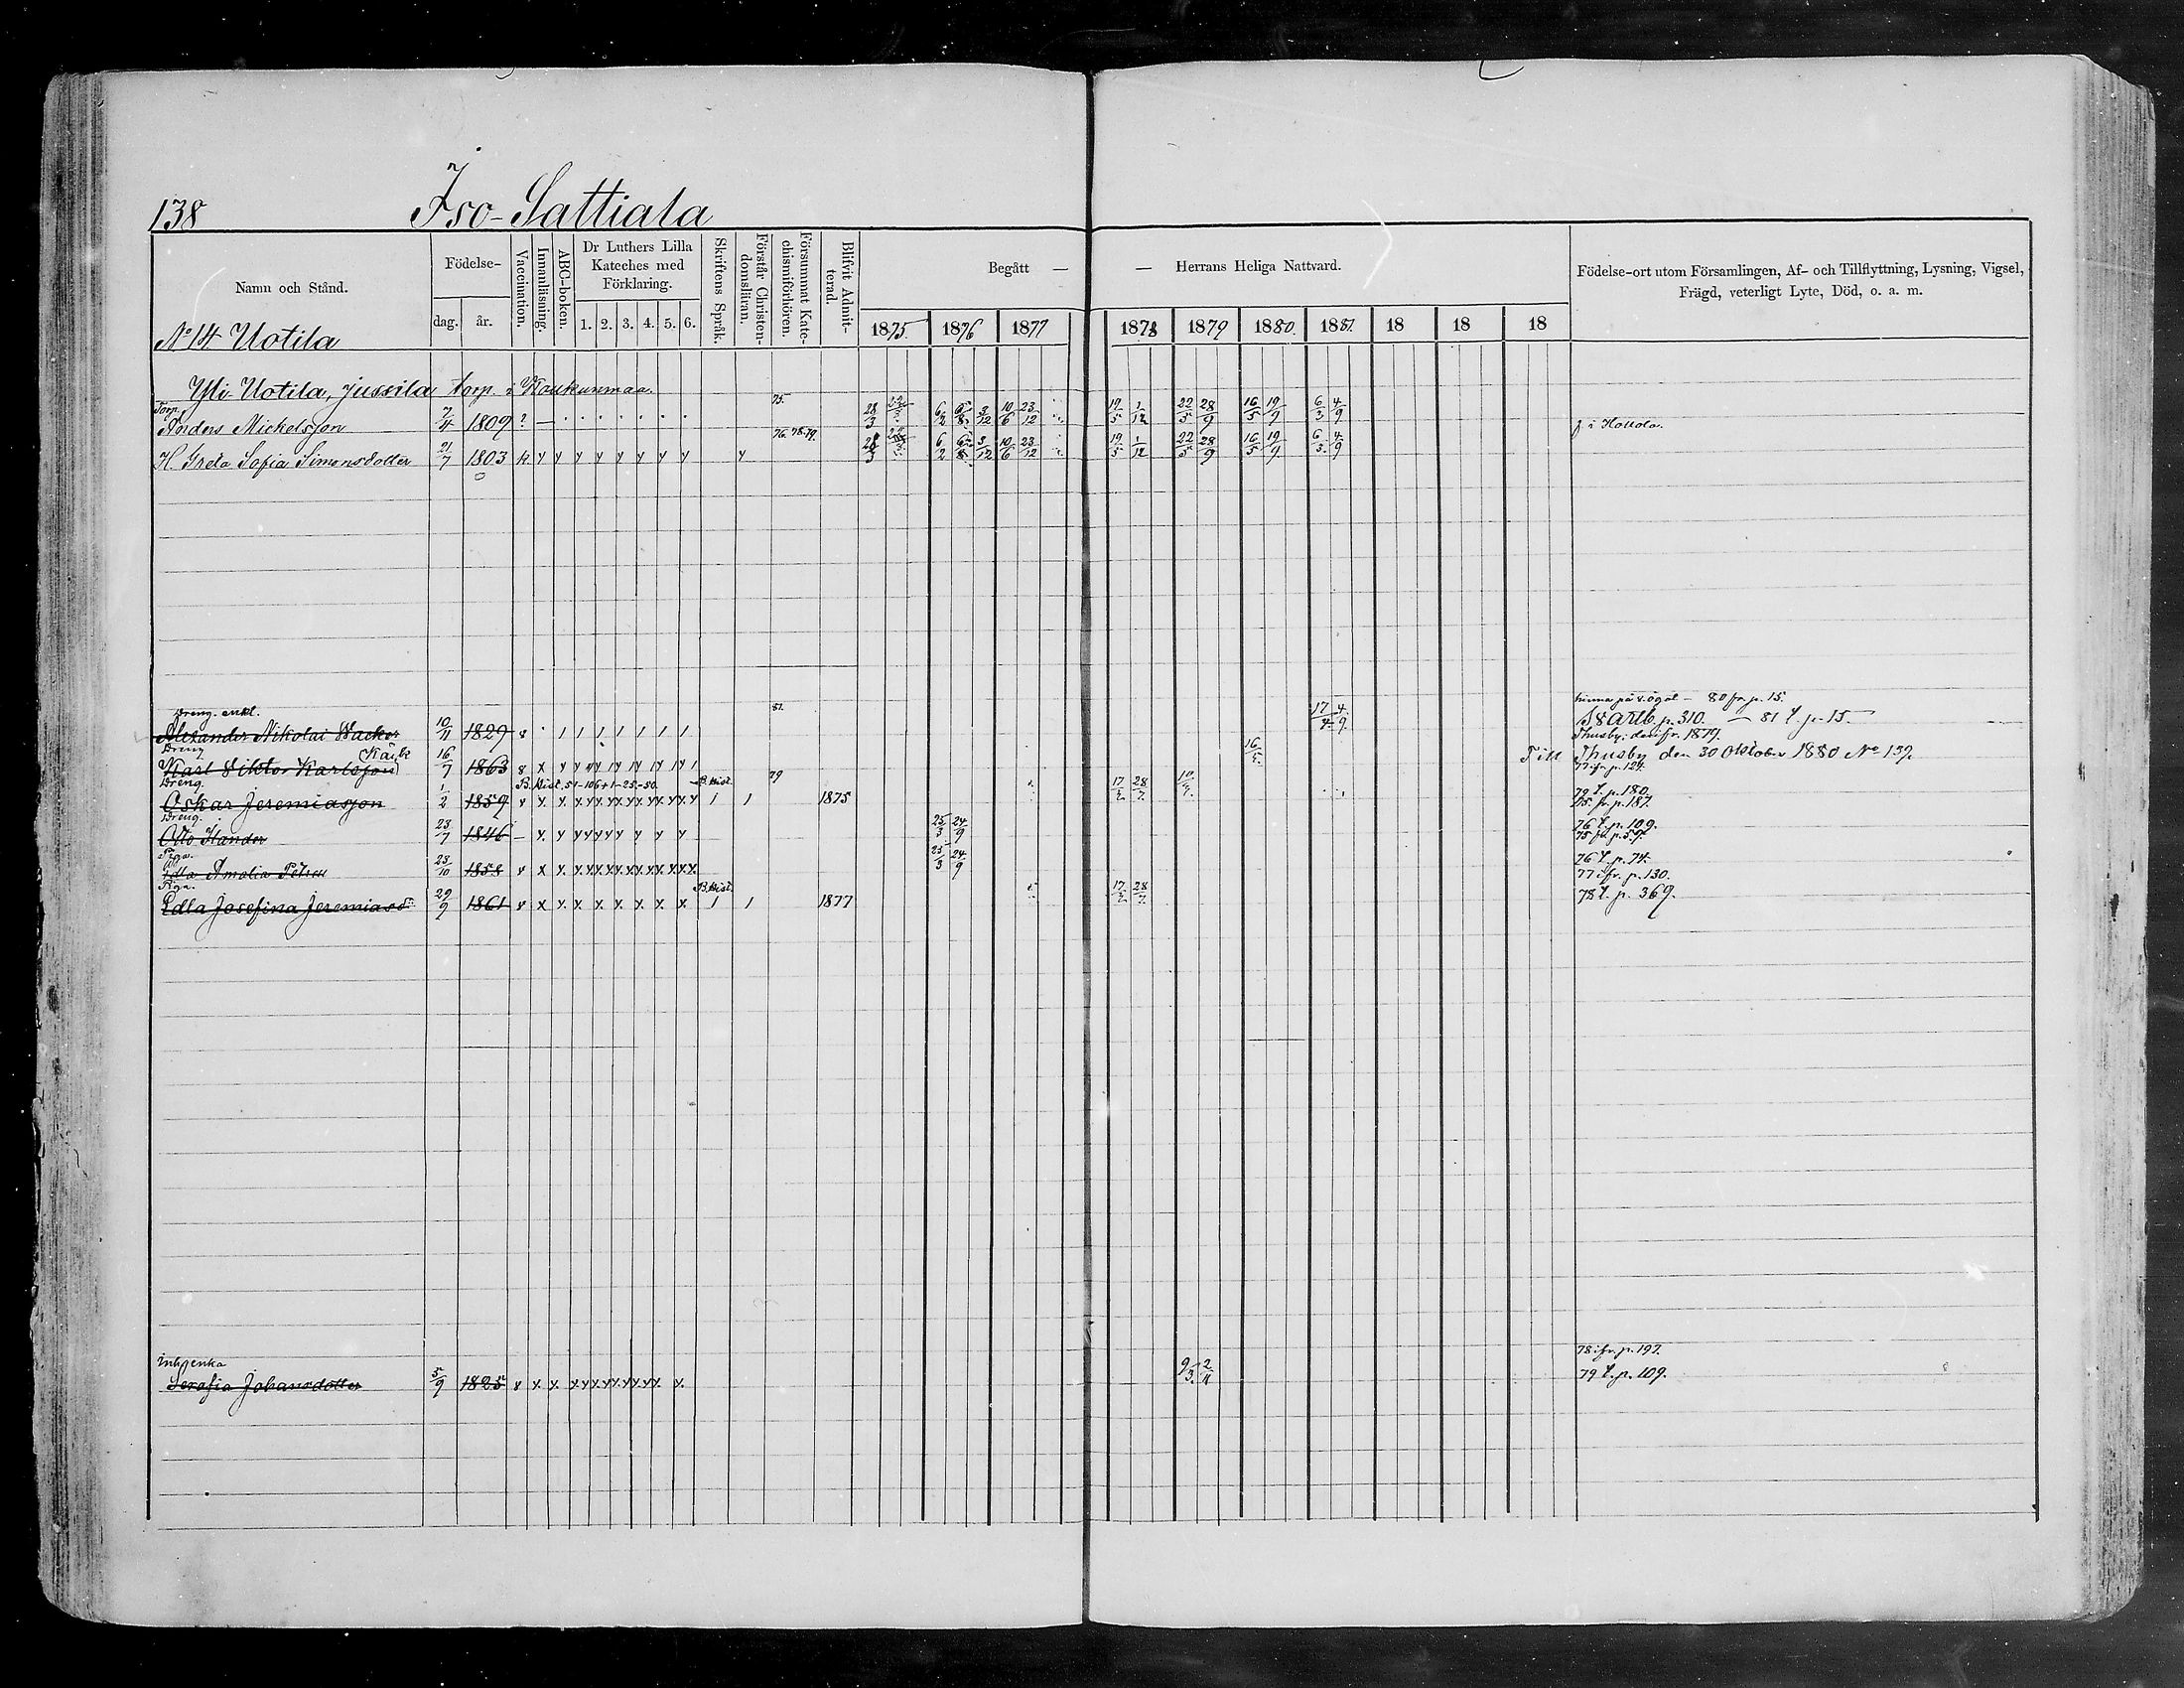 138 Iso-Sattiala
Namn och Stånd.
Födelse-
dag. år.
Vaccination.
Innanläsning.
ABC-boken.
Dr Luthers Lilla
Kateches med
Förklaring.
1. 2. 3. 4. 5. 6.
Skriftens Språk.
Förstår Christen-
domsläran.
Försummat Kate-
chismiförhören.
Blifvit Admit-
terad.
Begått — — Herrans Heliga Nattvard.
1875. 1876 1877 1878 1879 1880. 1881. 18 18 18
Födelse-ort utom Församlingen, Af- och Tillflyttning, Lysning, Vigsel,
Frägd, veterligt Lyte, Död, o. a. m.
No 14 Uotila
Yli-Uotila, Jussila torp. i Koukunmaa.
Torp. 75.
Anders Mickelsson 7/4 1809 ? — 28/3 6/2 3/12 10/6 23/12 19/5 1/12 22/5 28/9 16/5 19/9 6/3 4/9 f. i Hollola.
76. 78. 79.
H. Greta Sofia Simonsdotter 21/7 1803 k y y y y y y y y y 28/3 6/2 3/12 10/6 23/12 19/5 1/12 22/5 28/9 16/5 19/9 6/3 4/9
Dreng. enkl. 81. 80 fr. p. 15.
Alexander Nikolai Wacker 10/11 1829 17/4 4/9 p. 310. — 81 t. p. 15.
Dreng Thusby: 1879.
Karl Viktor Karlsson 16/7 1863 16/5 Till Thusby den 30 Oktober 1880 No 139.
Dreng. B. Hist. 51-106+1-25.-50. B. Hist. 79 77 ifr. p. 124.
Oskar Jeremiasson 1/2 1859 1 1 1875 17/2 28/7 79 t. p. 180.
Dreng. 75. fr. p. 187.
Otto Hander 23/7 1846 25/3 24/9 76 t. p. 109.
Piga. 75 fr. p. 59.
Ida Amalia Petersd 23/10 1858 25/3 24/9 76 t. p. 74.
Piga. B. Hist. 77 ifr. p. 130.
Edla Josefina Jeremiasd: 29/9 1861 1 1 1877 17/2 28/7 78 t. p. 369.
Inh. enka 78 ifr. p. 197.
Serafia Johansdotter 5/9 1825 9/3 2/11 79 t. p. 109.